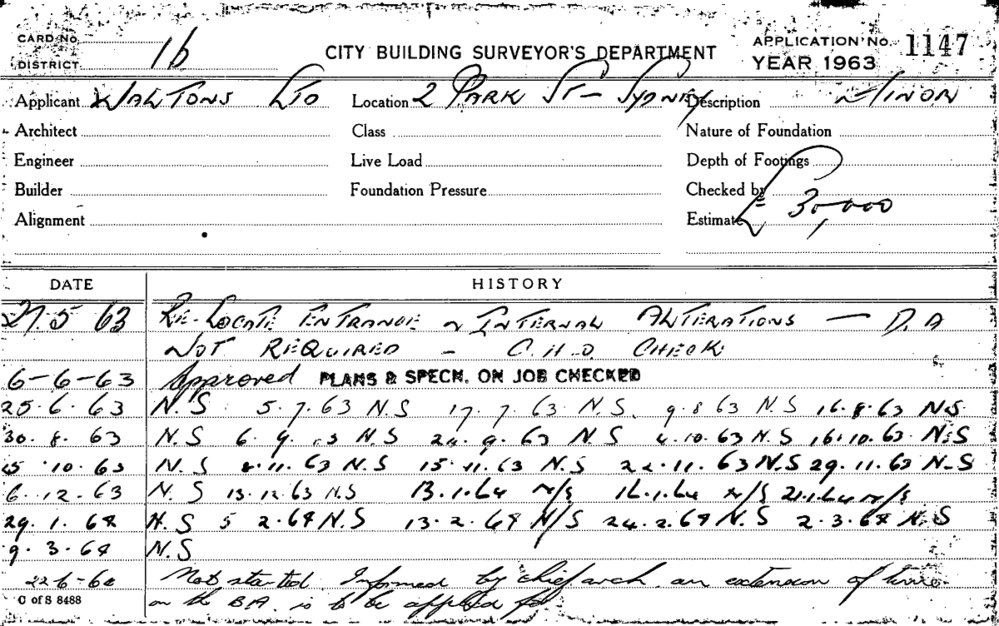 CARD No. 1b
DISTRICT
CITY BUILDING SURVEYOR'S DEPARTMENT
APPLICATION No. 1147
YEAR 1963
Applicant WALTONS LTD Location 2 PARK ST - SYDNEY Description MINOR
Architect Class Nature of Foundation
Engineer Live Load Depth of Footings
Builder Foundation Pressure Checked by
Alignment Estimate £ 30,000
DATE HISTORY
27.5 63 RE-LOCATE ENTRANCE & INTERNAL ALTERATIONS — D.A
NOT REQUIRED - C.H.O. CHECK
6-6-63 Approved PLANS & SPECN. ON JOB CHECKED
25.6.63 N.S 5.7.63 N.S 17.7.63 N.S. 9.8.63 N.S 16.8.63 N.S.
30.8.63 N.S 6.9.63 N.S 20.9.63 N.S 4.10.63 N.S 16.10.63 N.S
25.10.63 N.S 8.11.63 N.S 15.11.63 N.S 22.11.63 N.S 29.11.63 N.S
6.12.63 N.S 13.12.63 N.S 13.1.64 N/S 16.1.64 N/S 21.1.64 N/S
29.1.64 N.S 5.2.64 N.S 13.2.64 N/S 24.2.64 N.S 2.3.64 N.S
9.3.64 N.S
22-6-64 Not started. Informed by chief arch. an extension of time
C of S 8488 on the B.A. is to be applied for.